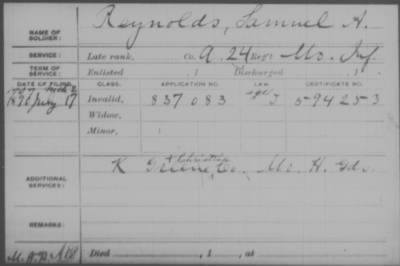 NAME OF SOLDIER: Reynolds, Samuel A.
SERVICE: Late rank, Co. A, 24 Reg't Mo. Inf.
TERM OF SERVICE: Enlisted , 1 Discharged , 1
DATE OF FILING. CLASS. APPLICATION NO. LAW. CERTIFICATE NO.
17 Invalid, 837083 594253
Widow,
Minor,
ADDITIONAL SERVICES: K Greene & Christian Co. Mo. H. Gds.
REMARKS:
Died , 1 , at